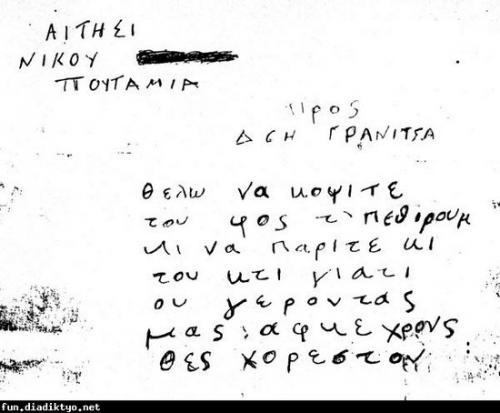 ΑΙΤΗΣΙ
ΝΙΚΟΥ
ΠΟΥΤΑΜΙΑ
Προς
ΔΕΗ ΓΡΑΝΙΤΣΑ
θελω να κοψιτε
του φος τ' πεθιρουμ
κι να παριτε κι
του κτι γιατι
ου γεροντας
μας αφκε χρονς
θες χορεστον
fun.diadiktyo.net